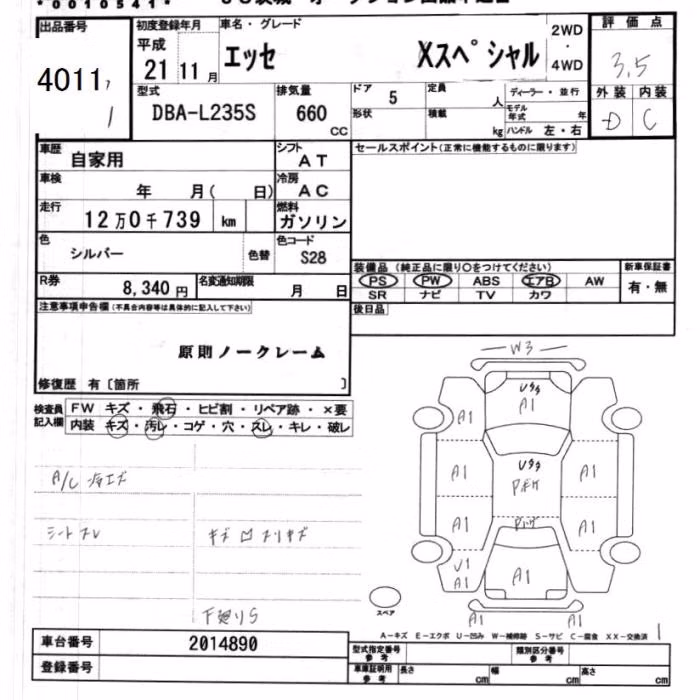 *0010541*
出品番号
4011
1
初度登録年月
平成
21 11月
車名・グレード
エッセ Xスペシャル
2WD
・
4WD
評価点
3.5
外装 内装
D C
型式
DBA-L235S
排気量
660
CC
ドア
5
形状
定員
人
積載
kg
ディーラー・並行
モデル
年式 年
ハンドル 左・右
車歴
自家用
シフト
AT
セールスポイント(正常に機能するものに限ります)
車検
年 月( 日)
冷房
AC
走行
12万0千739 km
燃料
ガソリン
色
シルバー
色替
色コード
S28
R券
8,340円
名変通知期限
月 日
装備品(純正品に限り〇をつけてください)
PS PW ABS エアB AW
SR ナビ TV カワ
新車保証書
有・無
後日品
注意事項申告欄(不具合内容等は具体的に記入して下さい)
原則ノークレーム
修復歴 有〔箇所 〕
検査員
記入欄
FW キズ・飛石・ヒビ割・リペア跡・×要
内装 キズ・汚レ・コゲ・穴・スレ・キレ・破レ
W3
Uタタ
A1
A1
A1
Uタタ
Pボケ
A1
A1
Pボケ
A1
U1
A1
A1
A1
A1
スペア
シートスレ
下廻りS
A1 A1
A-キズ E-エクボ U-凹み W-補修跡 S-サビ C-腐食 XX-交換済
1
車台番号 2014890
登録番号
型式指定番号
参考
類別区分番号
参考
車庫証明用
参考
長さ cm
幅 cm
高さ cm